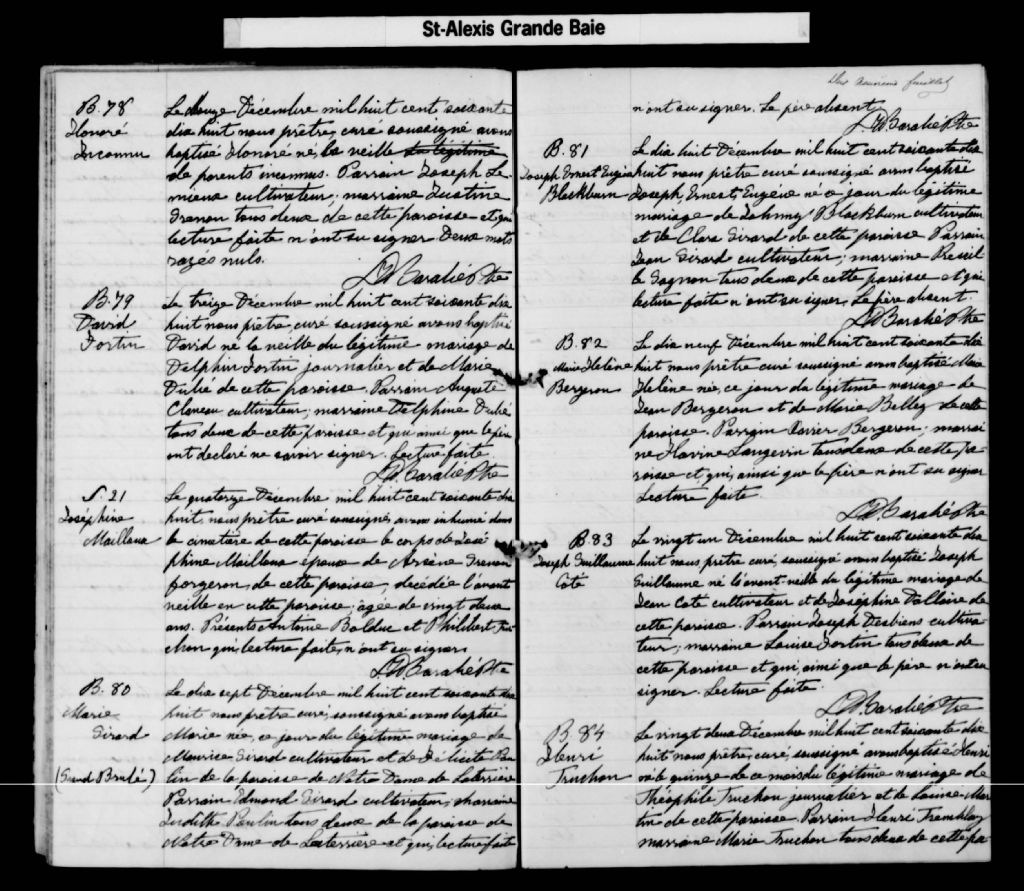 St-Alexis Grande Baie
B. 78
Honoré
Inconnu
Le douze Décembre mil huit cent soixante
dix huit nous prêtre, curé soussigné avons
baptisé Honoré né la veille du légitime
de parents inconnus. Parrain Joseph Le-
mieux cultivateur; marraine Justine
Grenon tous deux de cette paroisse et qui
lecture faite n'ont su signer. Deux mots
rayés nuls.
B. 79
David
Fortin
Le treize Décembre mil huit cent soixante dix
huit nous prêtre curé soussigné avons baptisé
David né la veille du légitime mariage de
Delphin Fortin journalier et de Marie
Dufié de cette paroisse. Parrain Auguste
Claveau cultivateur; marraine Delphine
tous deux de cette paroisse et qui ainsi que le père
ont déclaré ne savoir signer. Lecture faite.
S. 21
Joséphine
Mailloux
Le quatorze Décembre mil huit cent soixante dix
huit, nous prêtre curé soussigné, avons inhumé dans
le cimetière de cette paroisse le corps de José
phine Mailloux épouse de Arsène Grenon
forgeron de cette paroisse, décédée l'avant
veille en cette paroisse, agée de vingt deux
ans. Présents Antoine Bolduc et Philibert Tru
chon qui lecture faite, n'ont su signer.
B. 80
Marie
Girard
(Grand Brulé)
Le dix sept Décembre mil huit cent soixante dix
huit nous prêtre curé, soussigné avons baptisé
Marie née, ce jour du légitime mariage de
Maurice Girard cultivateur et de Félicité Pau
lin de la paroisse de Notre Dame de Laterrière
Parrain Edmond Girard cultivateur, marraine
Judith Paulin tous deux de la paroisse de
Notre Dame de Laterrière et qui, lecture faite
feuillet
n'ont su signer. Le père absent.
B. 81
Joseph Ernest Eugène
Blackburn
Le dix huit Décembre mil huit cent soixante dix
huit nous prêtre curé soussigné avons baptisé
Joseph, Ernest, Eugène né ce jour du légitime
mariage de Johnny Blackburn cultivateur
et de Clara Girard de cette paroisse Parrain
Jean Girard cultivateur; marraine
le Gagnon tous deux de cette paroisse et qui
lecture faite n'ont su signer. Le père absent.
B. 82
Marie Helène
Bergeron
Le dix neuf Décembre mil huit cent soixante dix
huit nous prêtre curé soussigné avons baptisé Marie
Helène née, ce jour du légitime mariage de
Jean Bergeron et de Marie Belley de cette
paroisse. Parrain Xavier Bergeron; marrai
ne Flavine Langevin tous deux de cette pa-
roisse et qui, ainsi que le père n'ont su signer
Lecture faite.
B. 83
Joseph Guillaume
Coté
Le vingt un Décembre mil huit cent soixante dix
huit nous prêtre curé, soussigné avons baptisé Joseph
Guillaume né l'avant veille du légitime mariage de
Jean Coté cultivateur et de Joséphine Dallaire de
cette paroisse. Parrain Joseph Desbiens cultiva-
teur; marraine Louise Fortin tous deux de
cette paroisse et qui ainsi que le père n'ont su
signer. Lecture faite.
B. 84
Henri
Truchon
Le vingt deux Décembre mil huit cent soixante dix
huit nous prêtre, curé, soussigné avons baptisé Henri
né le quinze de ce mois du légitime mariage de
Théophile Truchon journalier et de Louise Mar
tin de cette paroisse. Parrain Henri Tremblay
marraine Marie Truchon tous deux de cette pa